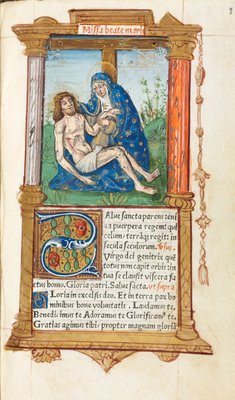 Missa beate marie
Salue sancta parens: eni
ca puerpera regem: qui
celum: terrāq3 regit: in
secula seculorum. Ꝟsus.
Virgo dei genitrix quē
totus non capit orbis: in
tua se clausit viscera fa
ctus homo. Gloria patri. Salue sācta. vt supra
Gloria in excelsis deo. Et in terra pax ho
minibus bone voluntatis. Laudamus te.
Benedicimus te Adoramus te Glorificam9 te.
Gratias agimus tibi propter magnam gloriā